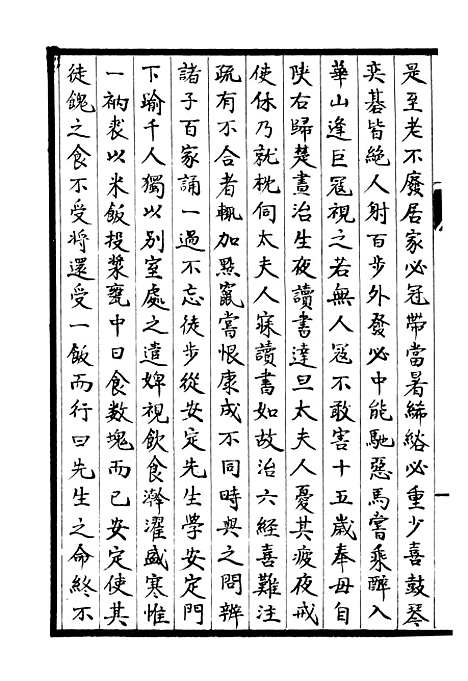 是至老不廢居家必冠帶當暑絺綌必重少喜鼓琴
奕碁皆絶人射百步外發必中能馳惡馬嘗乘醉入
華山逢巨寇視之若無人寇不敢害十五歲奉母自
陜右歸楚晝治生夜讀書達旦太夫人憂其疲夜戒
使休乃就枕伺太夫人寐讀書如故治六經喜難注
疏有不合者輒加㸃竄嘗恨康成不同時與之問辨
諸子百家誦一過不忘徒步從安定先生學安定門
下踰千人獨以别室處之遣婢視飲食澣濯盛寒惟
一衲裘以米飯投漿甕中日食數塊而已安定使其
徒餽之食不受將還受一飯而行曰先生之命終不